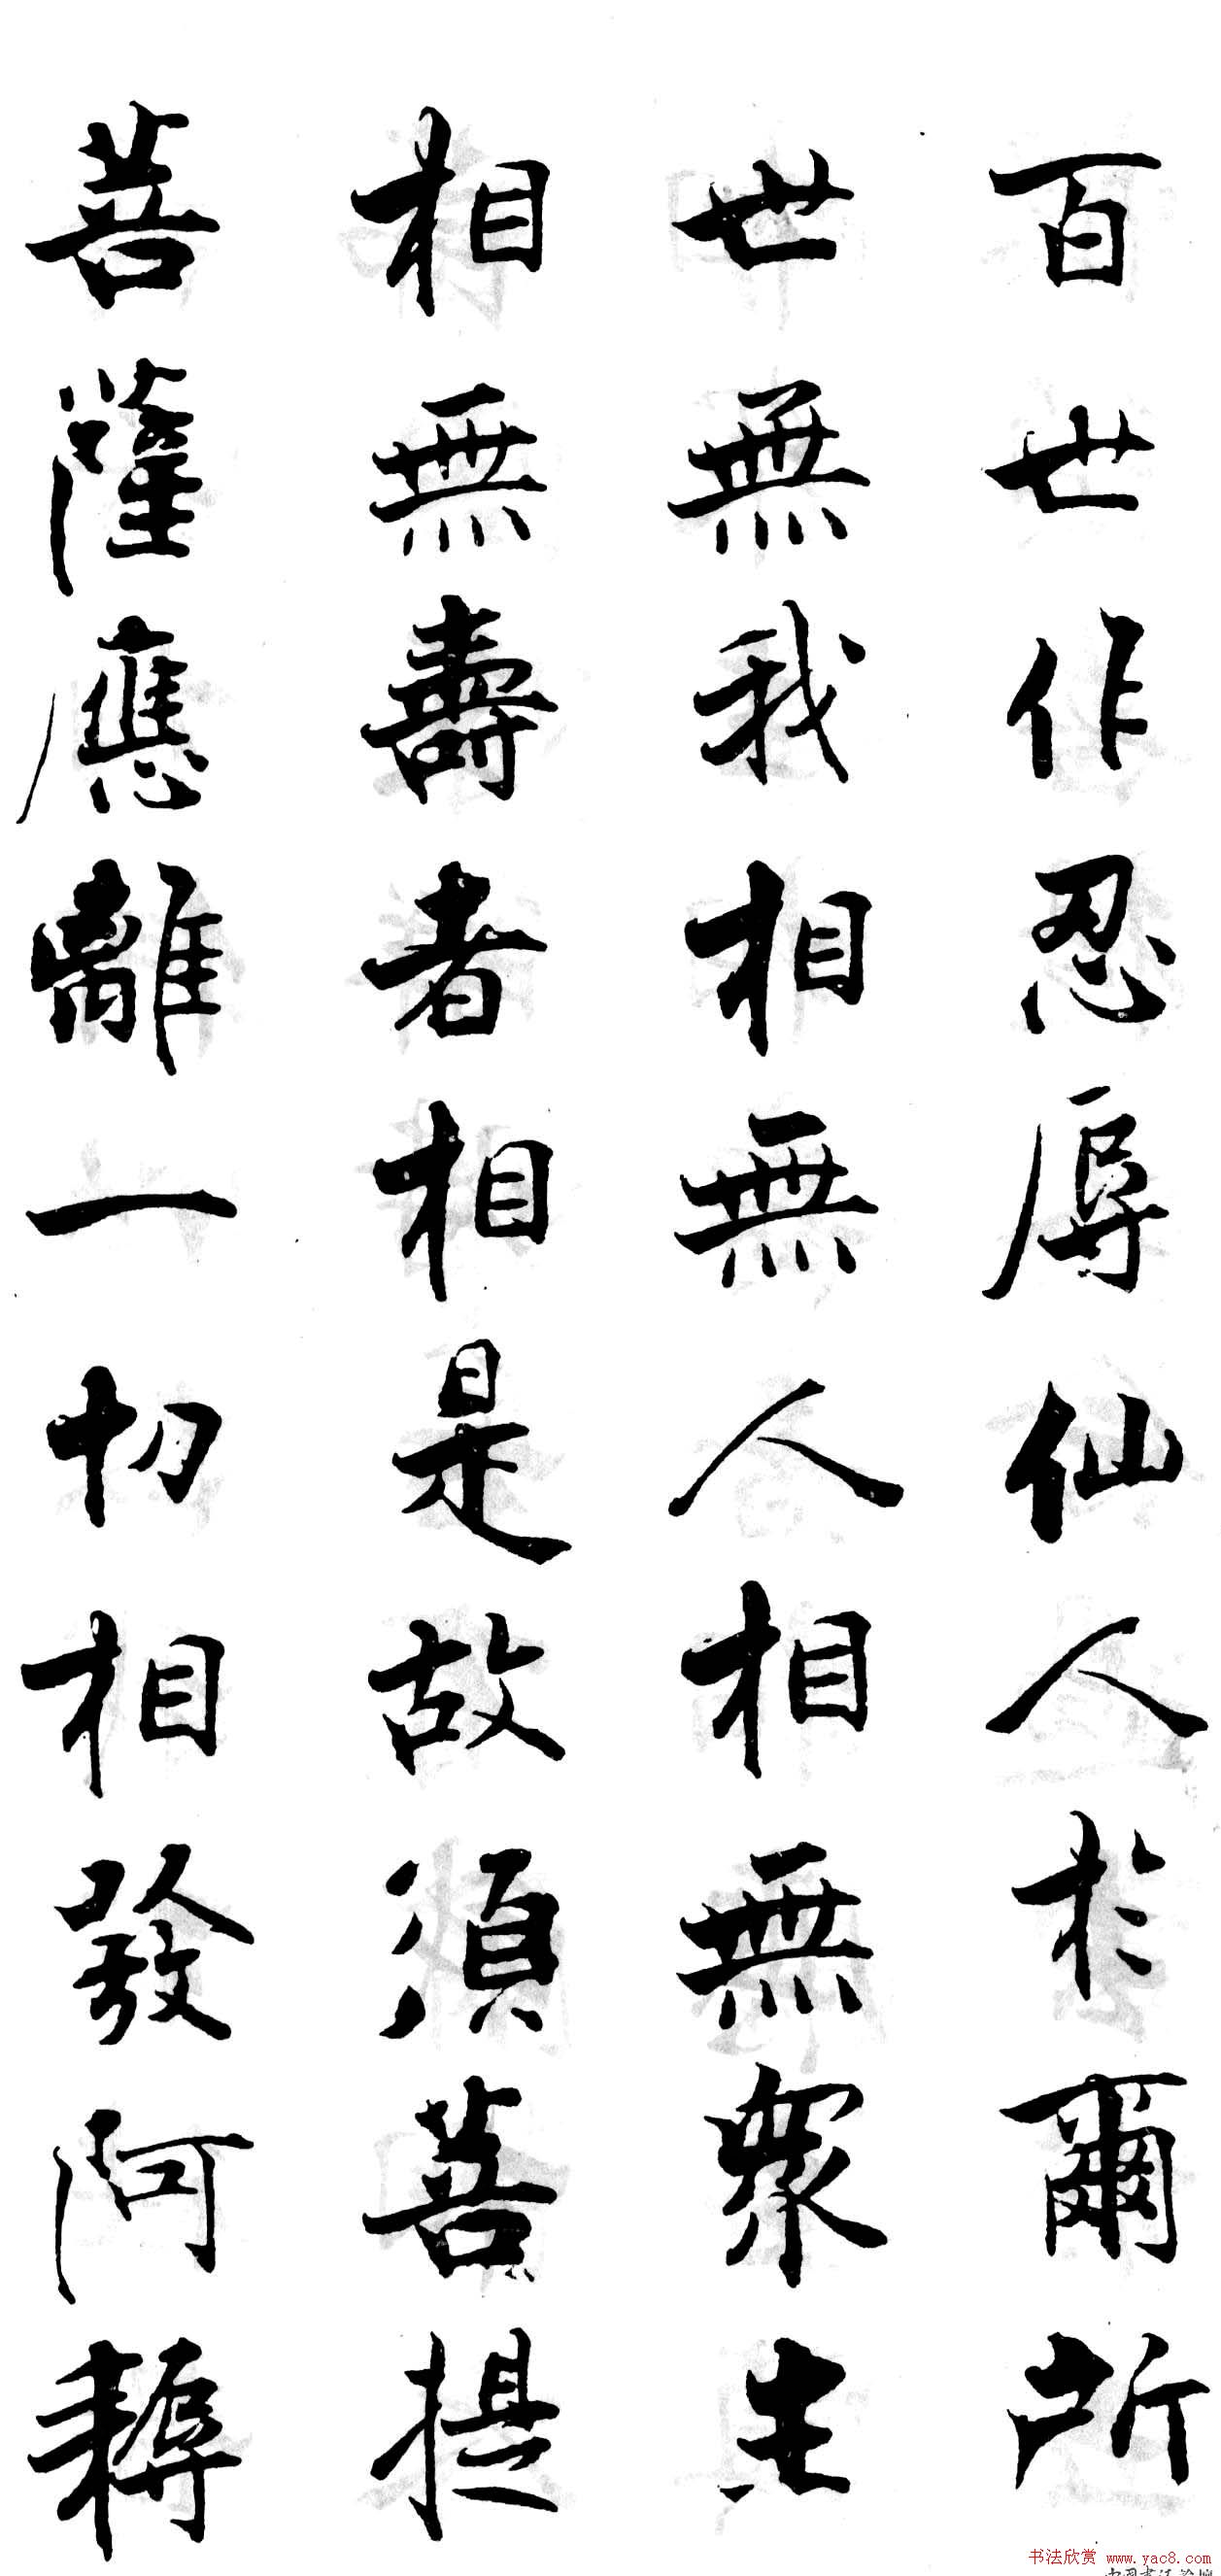 百世作忍辱仙人於爾所
世無我相無人相無眾生
相無壽者相是故須菩提
菩薩應離一切相發阿耨
书法欣赏 www.yac8.com